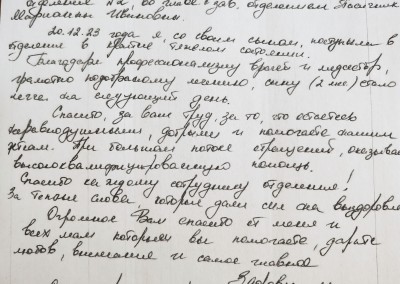 отделения №2, во главе с зав. отделением
Марианны Ивановны.
20.12.23 года я, со своим сыном, поступили в
отделение в крайне тяжелом состоянии.
Благодаря профессионализму врачей и медсестёр,
грамотно подобраному лечению, сыну (2 мес) стало
легче на следующий день.
Спасибо, за ваш труд, за то, что остаётесь
неравнодушными, добрыми и помогаете нашим
деткам. При большом потоке обращений, оказываете
высококвалифицированную помощь.
Спасибо каждому сотруднику отделения!
За теплые слова, которые дали сил на выздоровле
Огромное Вам спасибо от меня и
всех мам которым вы помогаете, дарите
любовь, внимание и самое главное